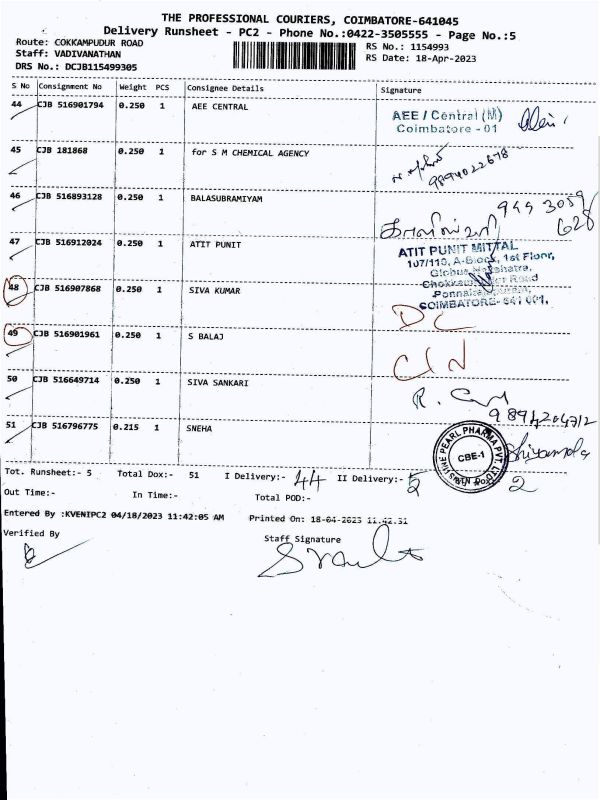 THE PROFESSIONAL COURIERS, COIMBATORE-641045
Delivery Runsheet - PC2 - Phone No.:0422-3505555 - Page No.:5
Route: COKKAMPUDUR ROAD
RS No.: 1154993
Staff: VADIVANATHAN
RS Date: 18-Apr-2023
DRS No.: DCJB115499305
S No Consignment No Weight PCS Consignee Details Signature
44 CJB 516901794 0.250 1 AEE CENTRAL
AEE / Central (M)
Coimbatore - 01
45 CJB 181868 0.250 1 for S M CHEMICAL AGENCY
9894022678
46 CJB 516893128 0.250 1 BALASUBRAMIYAM
949 3059
628
47 CJB 516912024 0.250 1 ATIT PUNIT
ATIT PUNIT MITTAL
107/110, A-Block, 1st Floor,
COIMBATORE- 641 001.
48 CJB 516907868 0.250 1 SIVA KUMAR
DC
49 CJB 516901961 0.250 1 S BALAJ
C/N
50 CJB 516649714 0.250 1 SIVA SANKARI
R.
9894204712
51 CJB 516796775 0.215 1 SNEHA
PEARL PHARMA PVT. LTD
CBE-1
Shiyamala
2
Tot. Runsheet:- 5 Total Dox:- 51 I Delivery:- 44 II Delivery:- 5
Out Time:- In Time:- Total POD:-
Entered By :KVENIPC2 04/18/2023 11:42:05 AM Printed On: 18-04-2023 11.42.31
Verified By Staff Signature